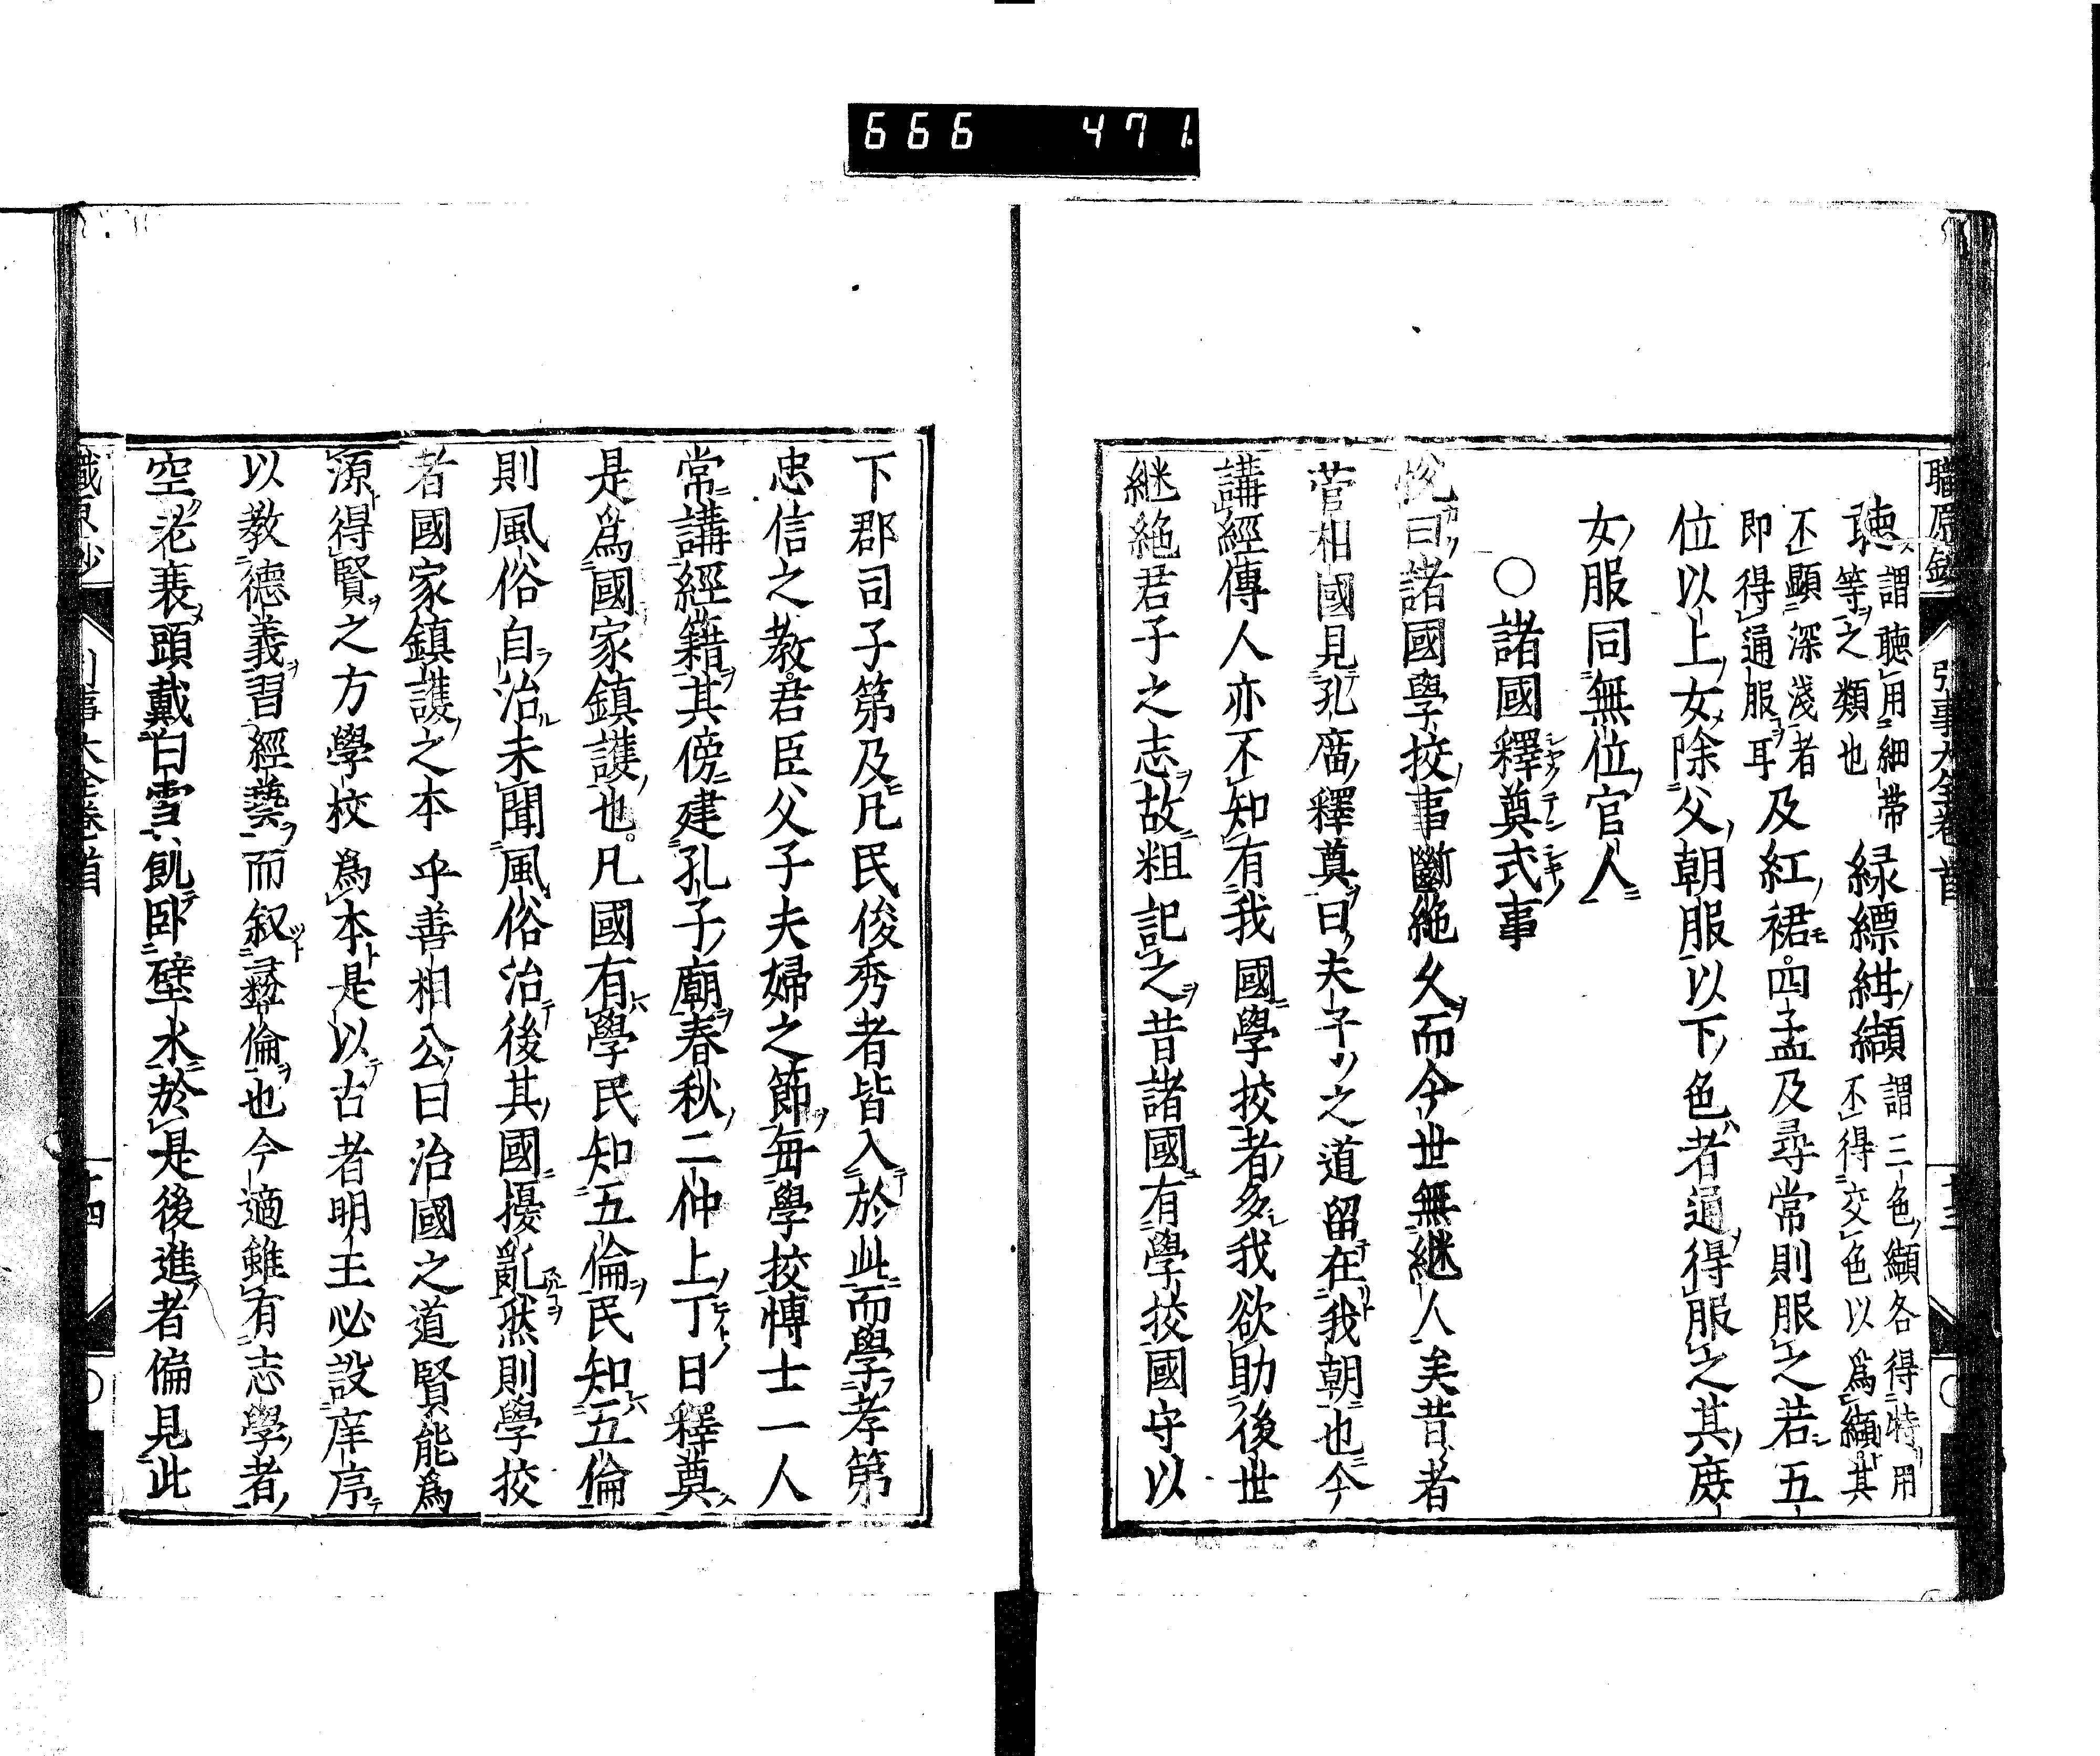 666 471
職原鈔 引事大全卷首 十三
聴 謂聴用細帯
等之類也 緑縹紺纈 謂三色纈各得特用
不得交色以爲纈其
不顯深淺者
即得通服耳 及紅裙四孟及尋常則服之若五
位以上女除父朝服以下色者通得服之其庶
女服同無位官人
〇諸國釋奠式事
悦曰諸國學挍事斷絶久而今世無継人矣昔者
菅相國見孔庿釋奠曰夫子之道留在我朝也今
講經傳人亦不知有我國學挍者多我欲助後世
継絶君子之志故粗記之昔諸國有學挍國守以
下郡司子第及凡民俊秀者皆入於此而學孝第
忠信之教君臣父子夫婦之節毎學挍博士一人
常講經籍其傍建孔子廟春秋二仲上丁日釋奠
是爲國家鎮護也凡國有學民知五倫民知五倫
則風俗自治未聞風俗治後其國擾亂然則學挍
者國家鎮護之本乎善相公曰治國之道賢能爲
源得賢之方學校爲本是以古者明王必設庠序
以教德義習經藝而叙彛倫也今適雖有志學者
空老衰頭戴白雪飢卧壁水於是後進者偏見此
職原鈔 引事大全卷首 十四